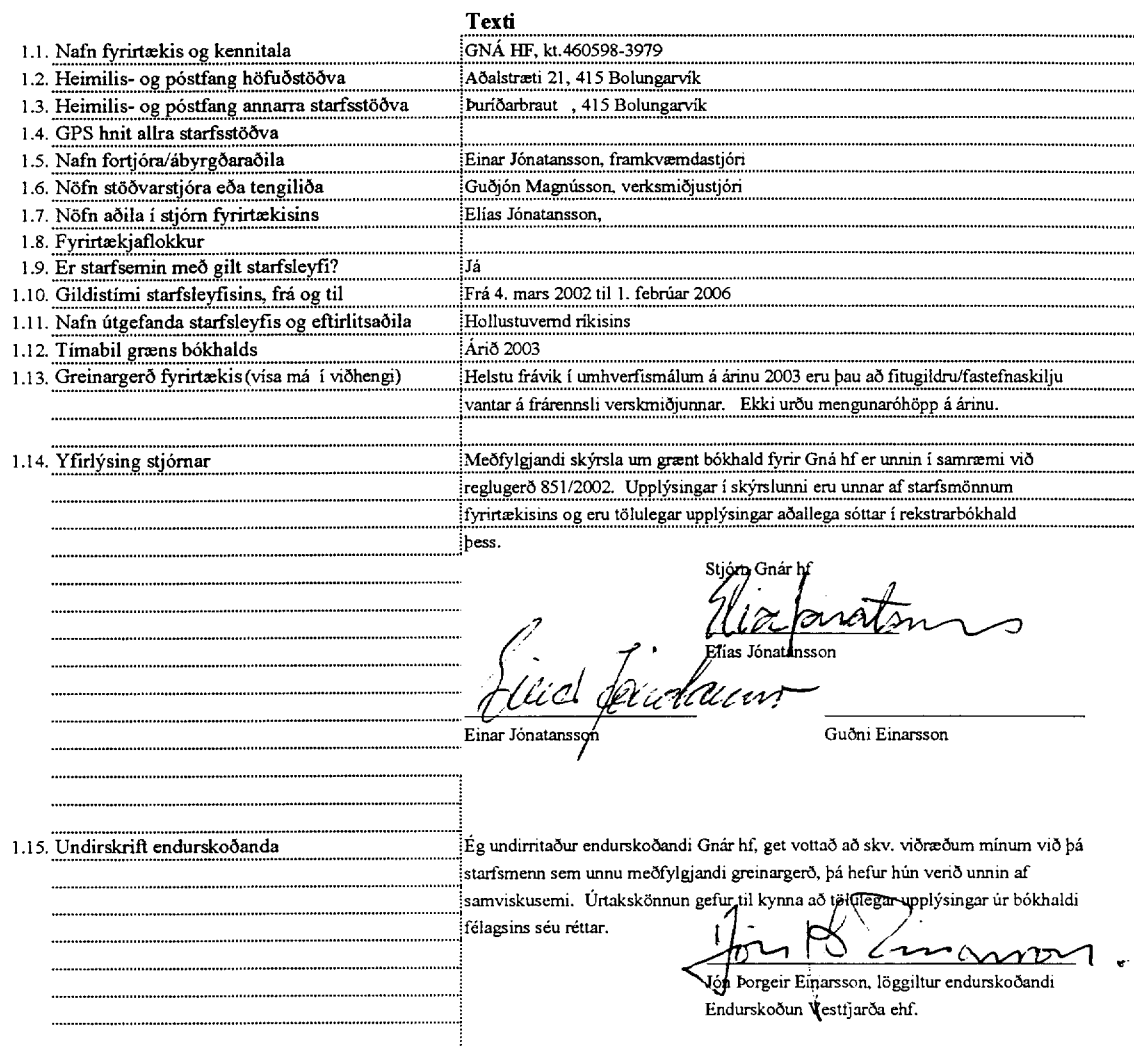 Texti
1.1. Nafn fyrirtækis og kennitala GNÁ HF, kt.460598-3979
1.2. Heimilis- og póstfang höfuðstöðva Aðalstræti 21, 415 Bolungarvík
1.3. Heimilis- og póstfang annarra starfsstöðva Þuríðarbraut , 415 Bolungarvík
1.4. GPS hnit allra starfsstöðva
1.5. Nafn fortjóra/ábyrgðaraðila Einar Jónatansson, framkvæmdastjóri
1.6. Nöfn stöðvarstjóra eða tengiliða Guðjón Magnússon, verksmiðjustjóri
1.7. Nöfn aðila í stjórn fyrirtækisins Elías Jónatansson,
1.8. Fyrirtækjaflokkur
1.9. Er starfsemin með gilt starfsleyfi? Já
1.10. Gildistími starfsleyfisins, frá og til Frá 4. mars 2002 til 1. febrúar 2006
1.11. Nafn útgefanda starfsleyfis og eftirlitsaðila Hollustuvernd ríkisins
1.12. Tímabil græns bókhalds Árið 2003
1.13. Greinargerð fyrirtækis (vísa má í viðhengi) Helstu frávik í umhverfismálum á árinu 2003 eru þau að fitugildru/fastefnaskilju
vantar á frárennsli verskmiðjunnar. Ekki urðu mengunaróhöpp á árinu.
1.14. Yfirlýsing stjórnar Meðfylgjandi skýrsla um grænt bókhald fyrir Gná hf er unnin í samræmi við
reglugerð 851/2002. Upplýsingar í skýrslunni eru unnar af starfsmönnum
fyrirtækisins og eru tölulegar upplýsingar aðallega sóttar í rekstrarbókhald
þess.
Stjórn Gnár hf
Elías Jónatansson
Einar Jónatansson Guðni Einarsson
1.15. Undirskrift endurskoðanda Ég undirritaður endurskoðandi Gnár hf, get vottað að skv. viðræðum mínum við þá
starfsmenn sem unnu meðfylgjandi greinargerð, þá hefur hún verið unnin af
samviskusemi. Úrtakskönnun gefur til kynna að tölulegar upplýsingar úr bókhaldi
félagsins séu réttar.
Jón Þorgeir Einarsson, löggiltur endurskoðandi
Endurskoðun Vestfjarða ehf.